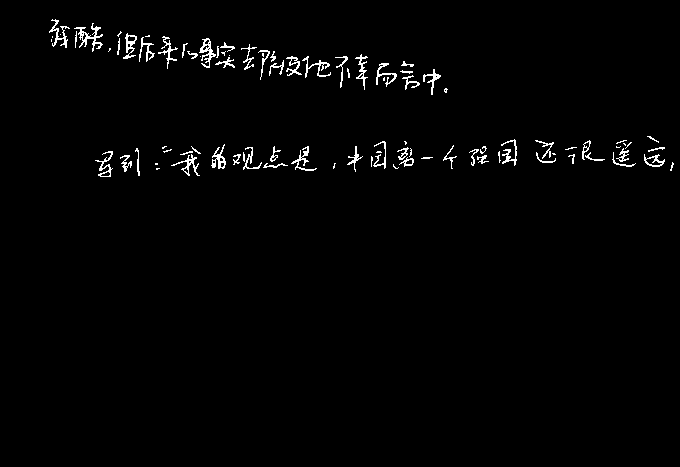 残酷,但后来的事实却险被他不幸而言中。
写到:“我的观点是,中国离一个强国还很遥远,